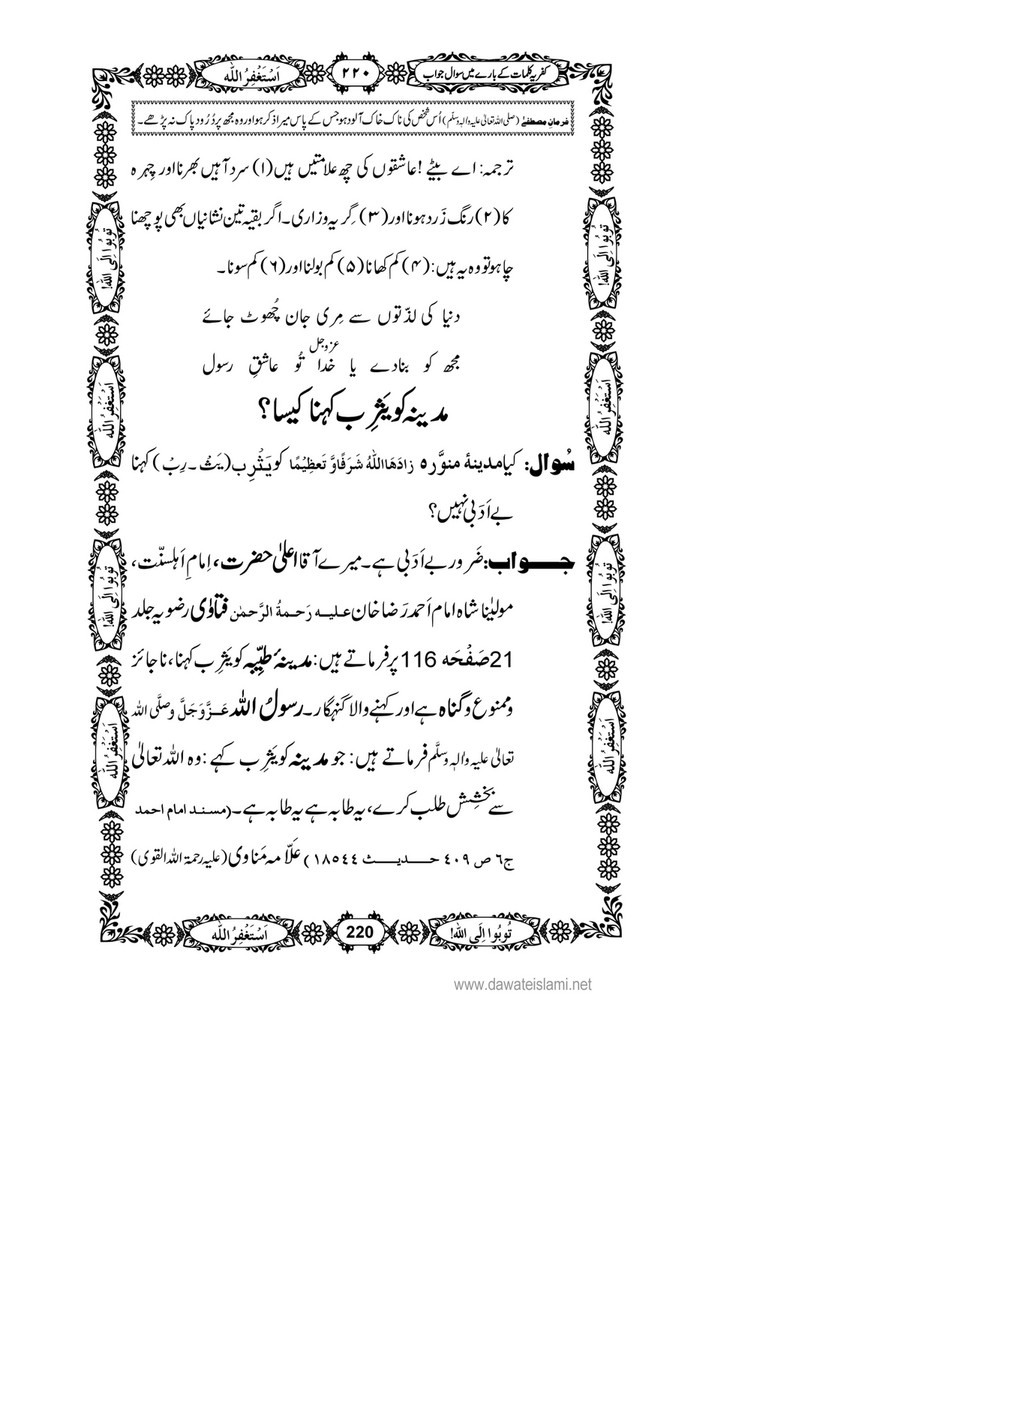 کفریہ کلمات کے بارے میں سوال جواب
۲۲۰
اَسْتَغْفِرُ اللّٰه
فرمانِ مصطفےٰ (صلی اللہ تعالیٰ علیہ والہٖ وسلّم) اُس شخص کی ناک خاک آلود ہو جس کے پاس میرا ذکر ہو اور وہ مجھ پر دُرُود پاک نہ پڑھے۔
ترجمہ: اے بیٹے! عاشقوں کی چھ علامتیں ہیں (۱) سرد آہیں بھرنا اور چِہرہ
کا (۲) رنگ زَرد ہونا اور (۳) گریہ وزاری۔ اگر بقیہ تین نشانیاں بھی پوچھنا
چاہو تو وہ یہ ہیں: (۴) کم کھانا (۵) کم بولنا اور (۶) کم سونا۔
دنیا کی لذّتوں سے مِری جان چُھوٹ جائے
مجھ کو بنا دے یا خدا عزوجل تُو عاشقِ رسول
مدینہ کو یَثْرِب کہنا کیسا؟
سُوال: کیا مدینۂ منوَّرہ زادَهَا اللّٰهُ شَرَفًا وَّ تَعظِیْمًا کو یَثْرِب (یَثْ۔رِبْ) کہنا
بے اَدَبی نہیں؟
جواب: ضَرور بے اَدَبی ہے۔ میرے آقا اعلیٰ حضرت، اِمامِ اَہلسنّت،
مولیٰنا شاہ امام اَحمد رَضا خان علیه رَحمةُ الرَّحمٰن فتاوٰی رضویہ جلد
21 صَفْحَه 116 پر فرماتے ہیں: مدینۂ طَیِّبہ کو یَثْرِب کہنا، ناجائز
و ممنوع و گناہ ہے اور کہنے والا گنہگار۔ رسولُ اللّٰہ عَزَّوَجَلَّ وصلَّی اللہ
تعالیٰ علیہ واٰلہٖ وسلَّم فرماتے ہیں: جو مدینہ کو یَثْرِب کہے: وہ اللہ تعالیٰ
سے بَخشِش طلب کرے، یہ طابہ ہے یہ طابہ ہے۔ (مسند امام احمد
ج٦ ص ٤٠٩ حدیث ١٨٥٤٤) علّامہ مَناوی (علیہ رحمۃ اللہ القوی)
تُوبُوا اِلَی اللّٰه!
اَسْتَغْفِرُ اللّٰه
تُوبُوا اِلَی اللّٰه!
اَسْتَغْفِرُ اللّٰه
تُوبُوا اِلَی اللّٰه!
اَسْتَغْفِرُ اللّٰه
تُوبُوا اِلَی اللّٰه!
اَسْتَغْفِرُ اللّٰه
تُوبُوا اِلَی اللّٰه!
220
اَسْتَغْفِرُ اللّٰه
www.dawateislami.net